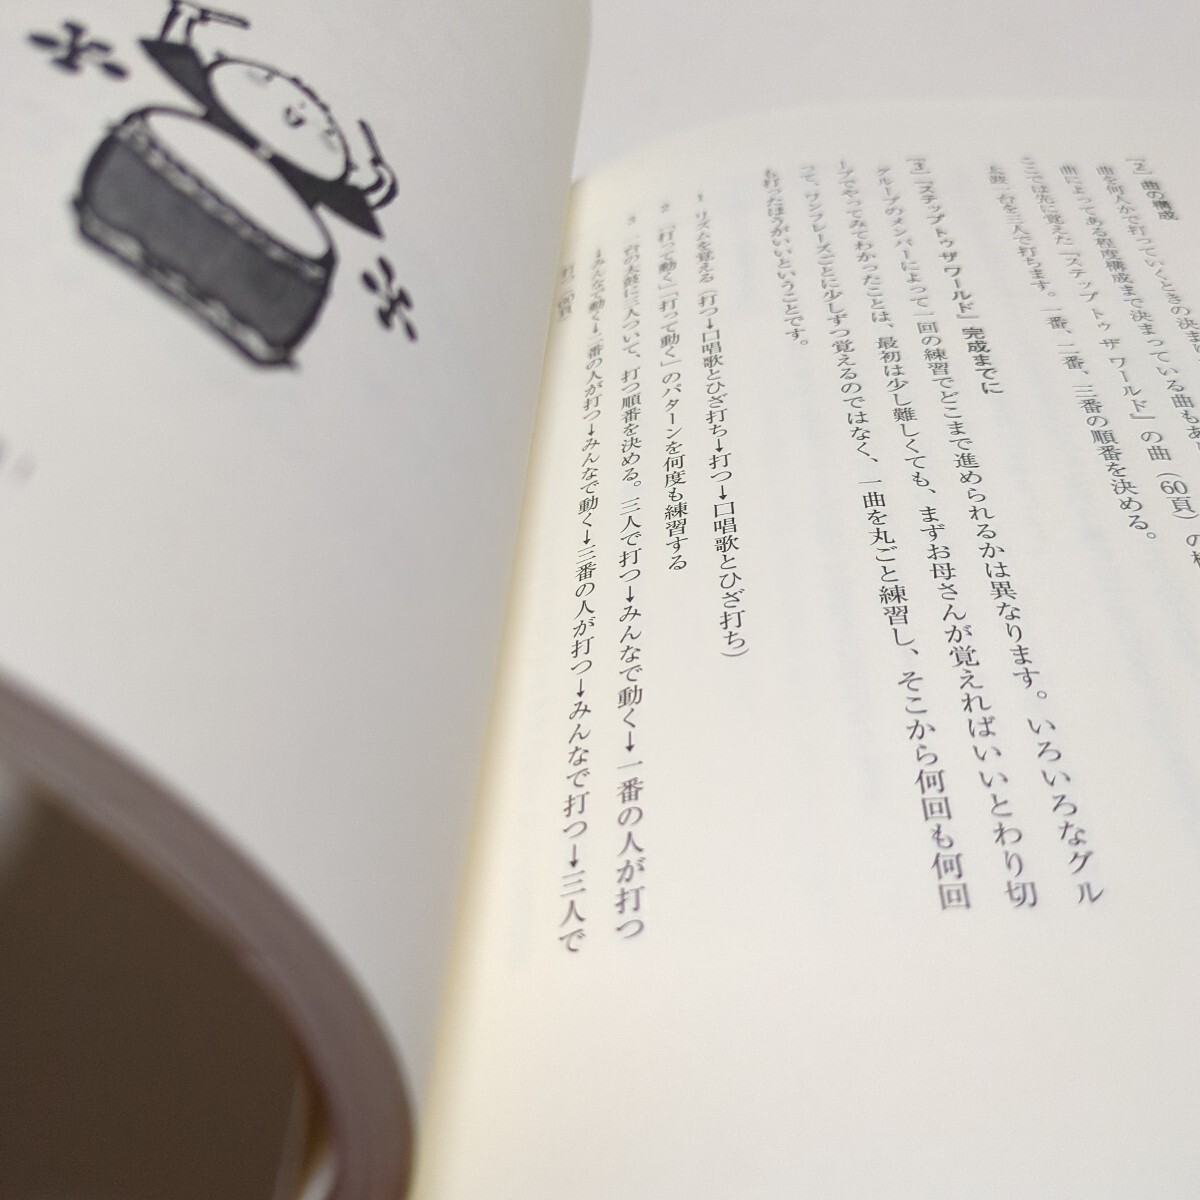 [2] 曲の構成
曲を何人かで打っていくときの決ま
曲によってある程度構成まで決まっている曲もあ
ここでは先に覚えた『ステップ トゥ ザ ワールド』の曲(60頁)の
太鼓一台を三人で打ちます。一番、二番、三番の順番を決める。
[3]『ステップ トゥ ザ ワールド』完成までに
グループのメンバーによって一回の練習でどこまで進められるかは異なります。いろいろなグル
ープでやってみてわかったことは、最初は少し難しくても、まずお母さんが覚えればいいとわり切
って、ワンフレーズごとに少しずつ覚えるのではなく、一曲を丸ごと練習し、そこから何回も何回
も打ったほうがいいということです。
1 リズムを覚える(打つ→口唱歌とひざ打ち→打つ→口唱歌とひざ打ち)
2 「打って動く」「打って動く」のパターンを何度も練習する
3 一台の太鼓に三人ついて、打つ順番を決める。三人で打つ→みんなで動く→一番の人が打つ
→みんなで動く→二番の人が打つ→みんなで動く→三番の人が打つ→みんなで打つ→三人で
打つ(60頁)